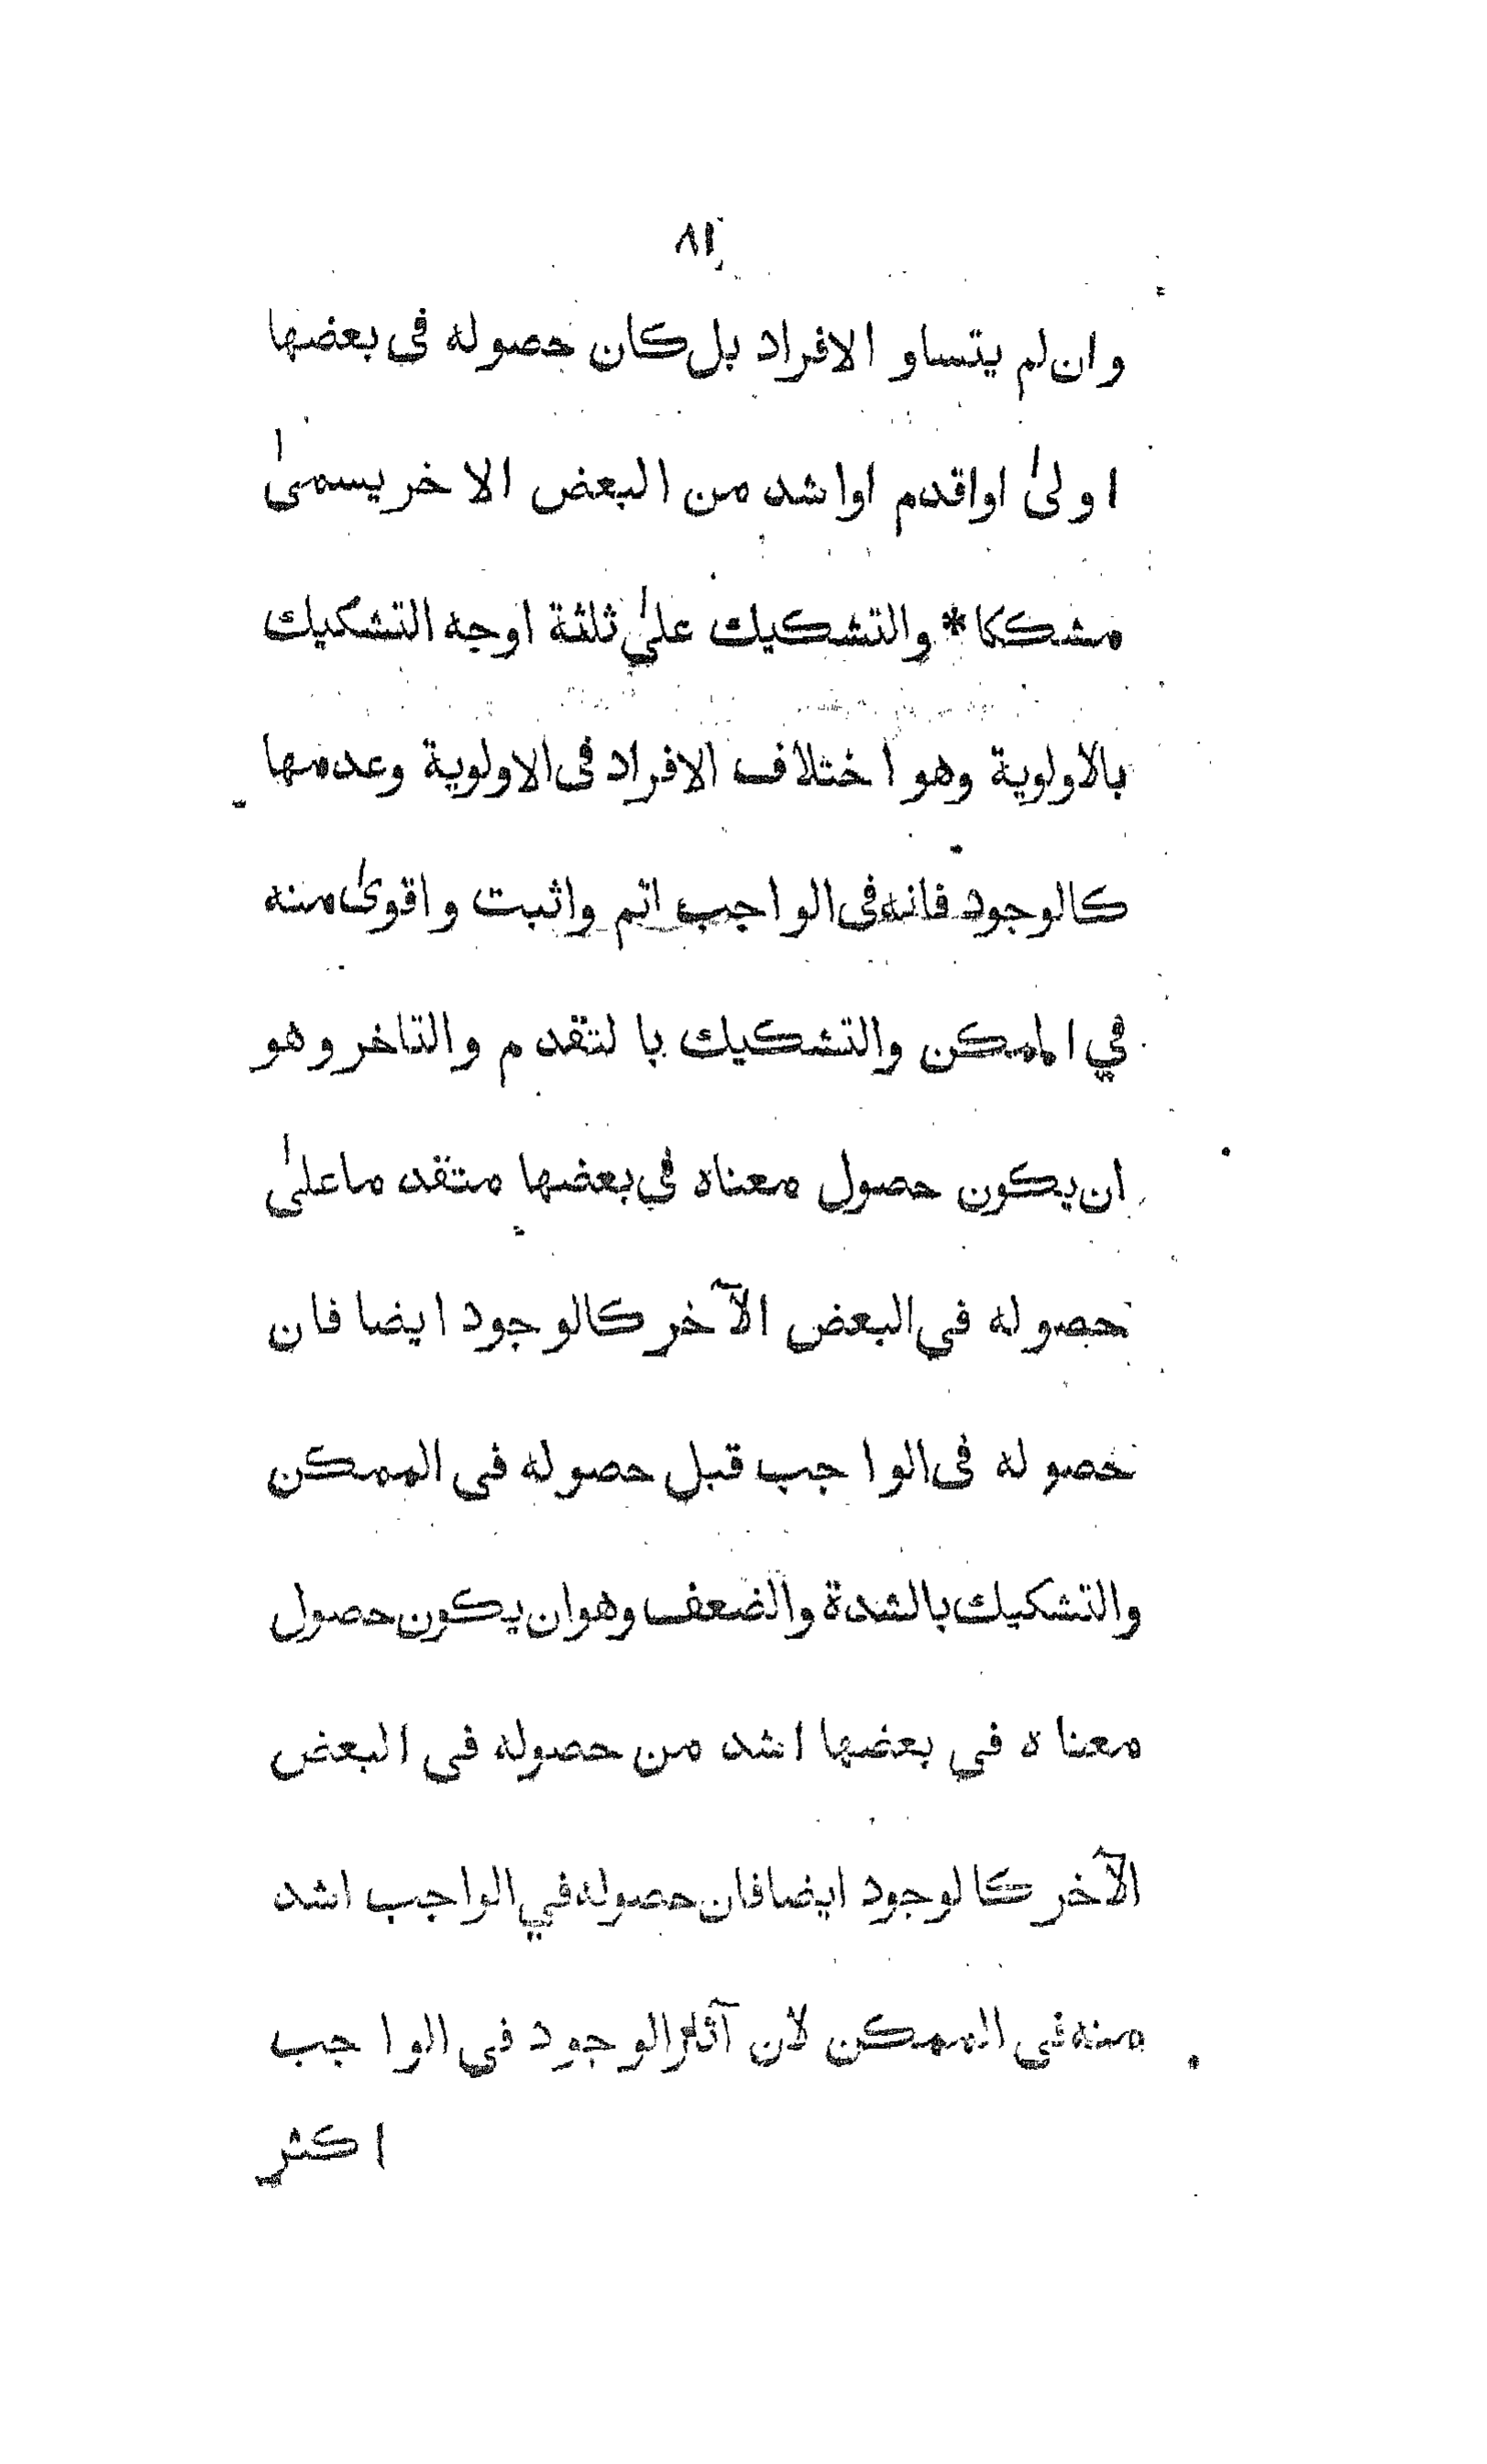 ٨١
وان لم يتساو الافراد بل كان حصوله فى بعضها
اولىٰ اواقدم اواشد من البعض الاخر يسمىٰ
مشككا * والتشكيك علىٰ ثلثة اوجه التشكيك
بالاولوية وهو اختلاف الافراد فى الاولوية وعدمها
كالوجود فانه فى الواجب اتم واثبت واقوىٰ منه
في الممكن والتشكيك بالتقدم والتاخر وهو
ان يكون حصول معناه في بعضها متقدما علىٰ
حصوله في البعض الآخر كالوجود ايضا فان
حصوله فى الواجب قبل حصوله فى الممكن
والتشكيك بالشدة والضعف وهوان يكون حصول
معناه فى بعضها اشد من حصوله فى البعض
الآخر كالوجود ايضا فان حصوله في الواجب اشد
منه فى الممكن لان آثار الوجود فى الواجب
اكثر